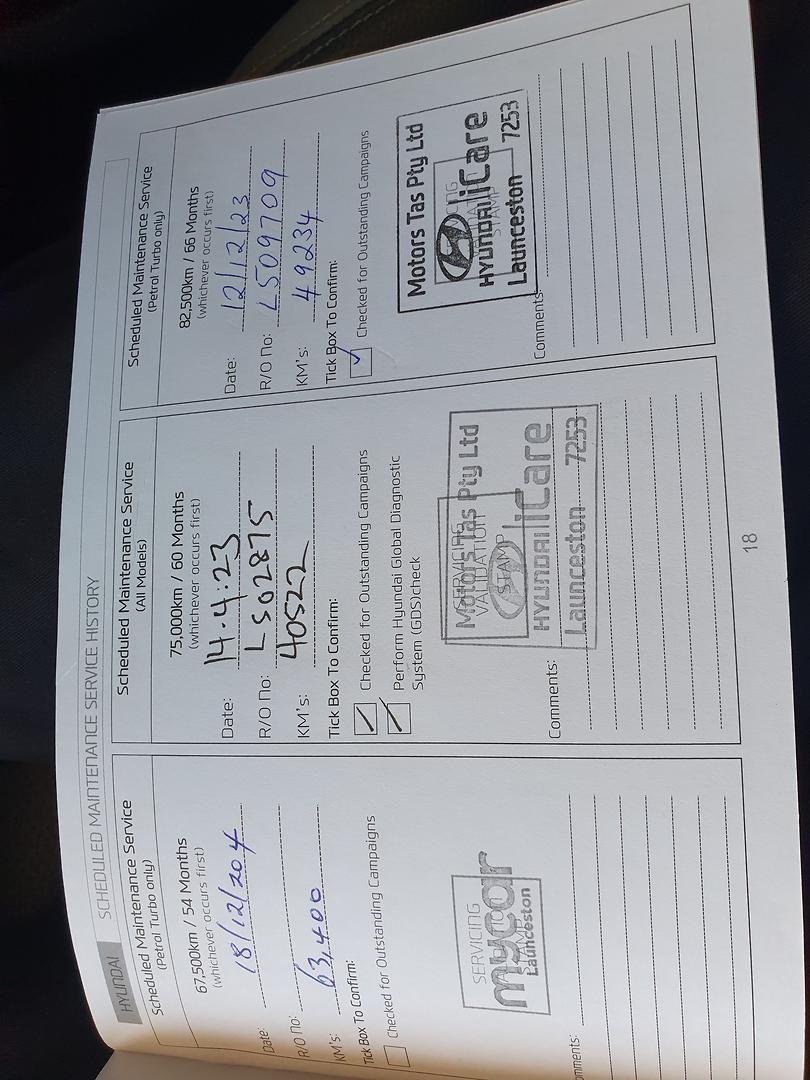 HYUNDAI SCHEDULED MAINTENANCE SERVICE HISTORY
Scheduled Maintenance Service
(Petrol Turbo only)
67,500km / 54 Months
(whichever occurs first)
Date: 18/12/204
R/O no:
KM's: 63,400
Tick Box To Confirm:
Checked for Outstanding Campaigns
SERVICING
mycar
Launceston
omments:
Scheduled Maintenance Service
(All Models)
75,000km / 60 Months
(whichever occurs first)
Date: 14.4:23
R/O no: LS02875
KM's: 40522
Tick Box To Confirm:
Checked for Outstanding Campaigns
Perform Hyundai Global Diagnostic
System (GDS)check
SERVICING
VALIDATION
STAMP
Motors Tas Pty Ltd
HYUNDAI iCare
Launceston 7253
Comments:
Scheduled Maintenance Service
(Petrol Turbo only)
82,500km / 66 Months
(whichever occurs first)
Date: 12/12/23
R/O no: LS09709
KM's: 49234
Tick Box To Confirm:
Checked for Outstanding Campaigns
STAMP
Motors Tas Pty Ltd
HYUNDAI iCare
Launceston 7253
Comments:
18